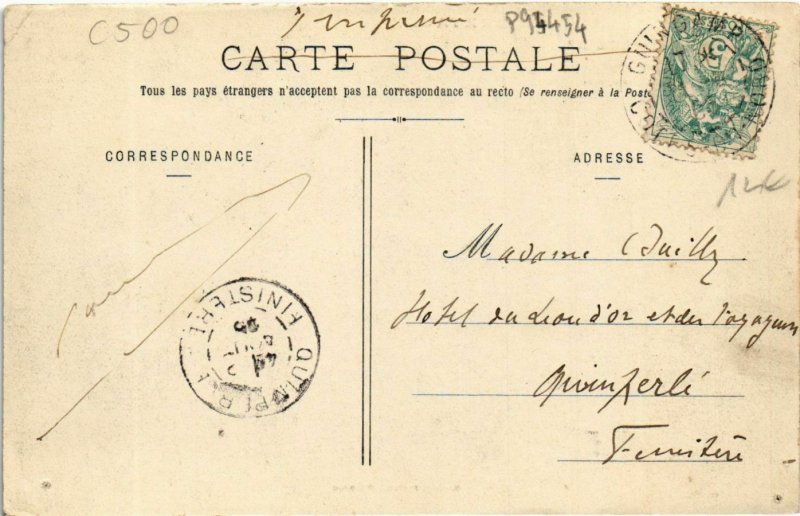 C500
Imprimé
P95454
CARTE POSTALE
Tous les pays étrangers n'acceptent pas la correspondance au recto (Se renseigner à la Poste
CORRESPONDANCE
ADRESSE
Madame
Hotel du Lion d'or et des Voyageurs
Quimperlé
Finistère
GUINGAMP
QUIMPERLE FINISTERE